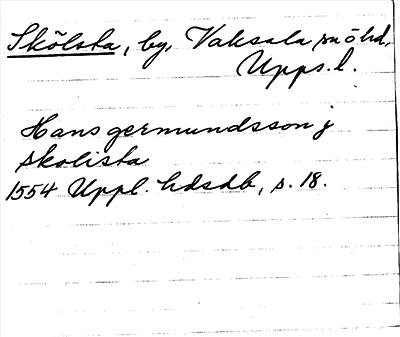 Skölsta, by, Vaksala sn o hd,
Upps. l.
Hans germundsson j
skolista
1554 Uppl. hdsdb, s. 18.